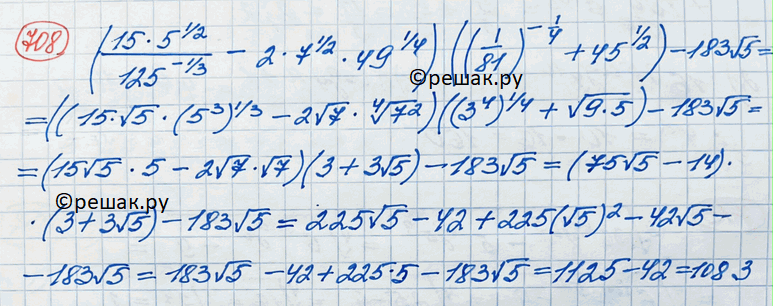 708 (15·5^{1/2}/125^{-1/3} − 2·7^{1/2}·49^{1/4}) ((1/81)^{-1/4} + 45^{1/2}) − 183√5 =
©решак.ру
= ((15·√5·(5³)^{1/3} − 2√7·⁴√7²)((3⁴)^{1/4} + √9·5) − 183√5 =
= (15√5·5 − 2√7·√7)(3 + 3√5) − 183√5 = (75√5 − 14)·
©решак.ру
·(3 + 3√5) − 183√5 = 225√5 − 42 + 225(√5)² − 42√5 −
− 183√5 = 183√5 − 42 + 225·5 − 183√5 = 1125 − 42 = 1083